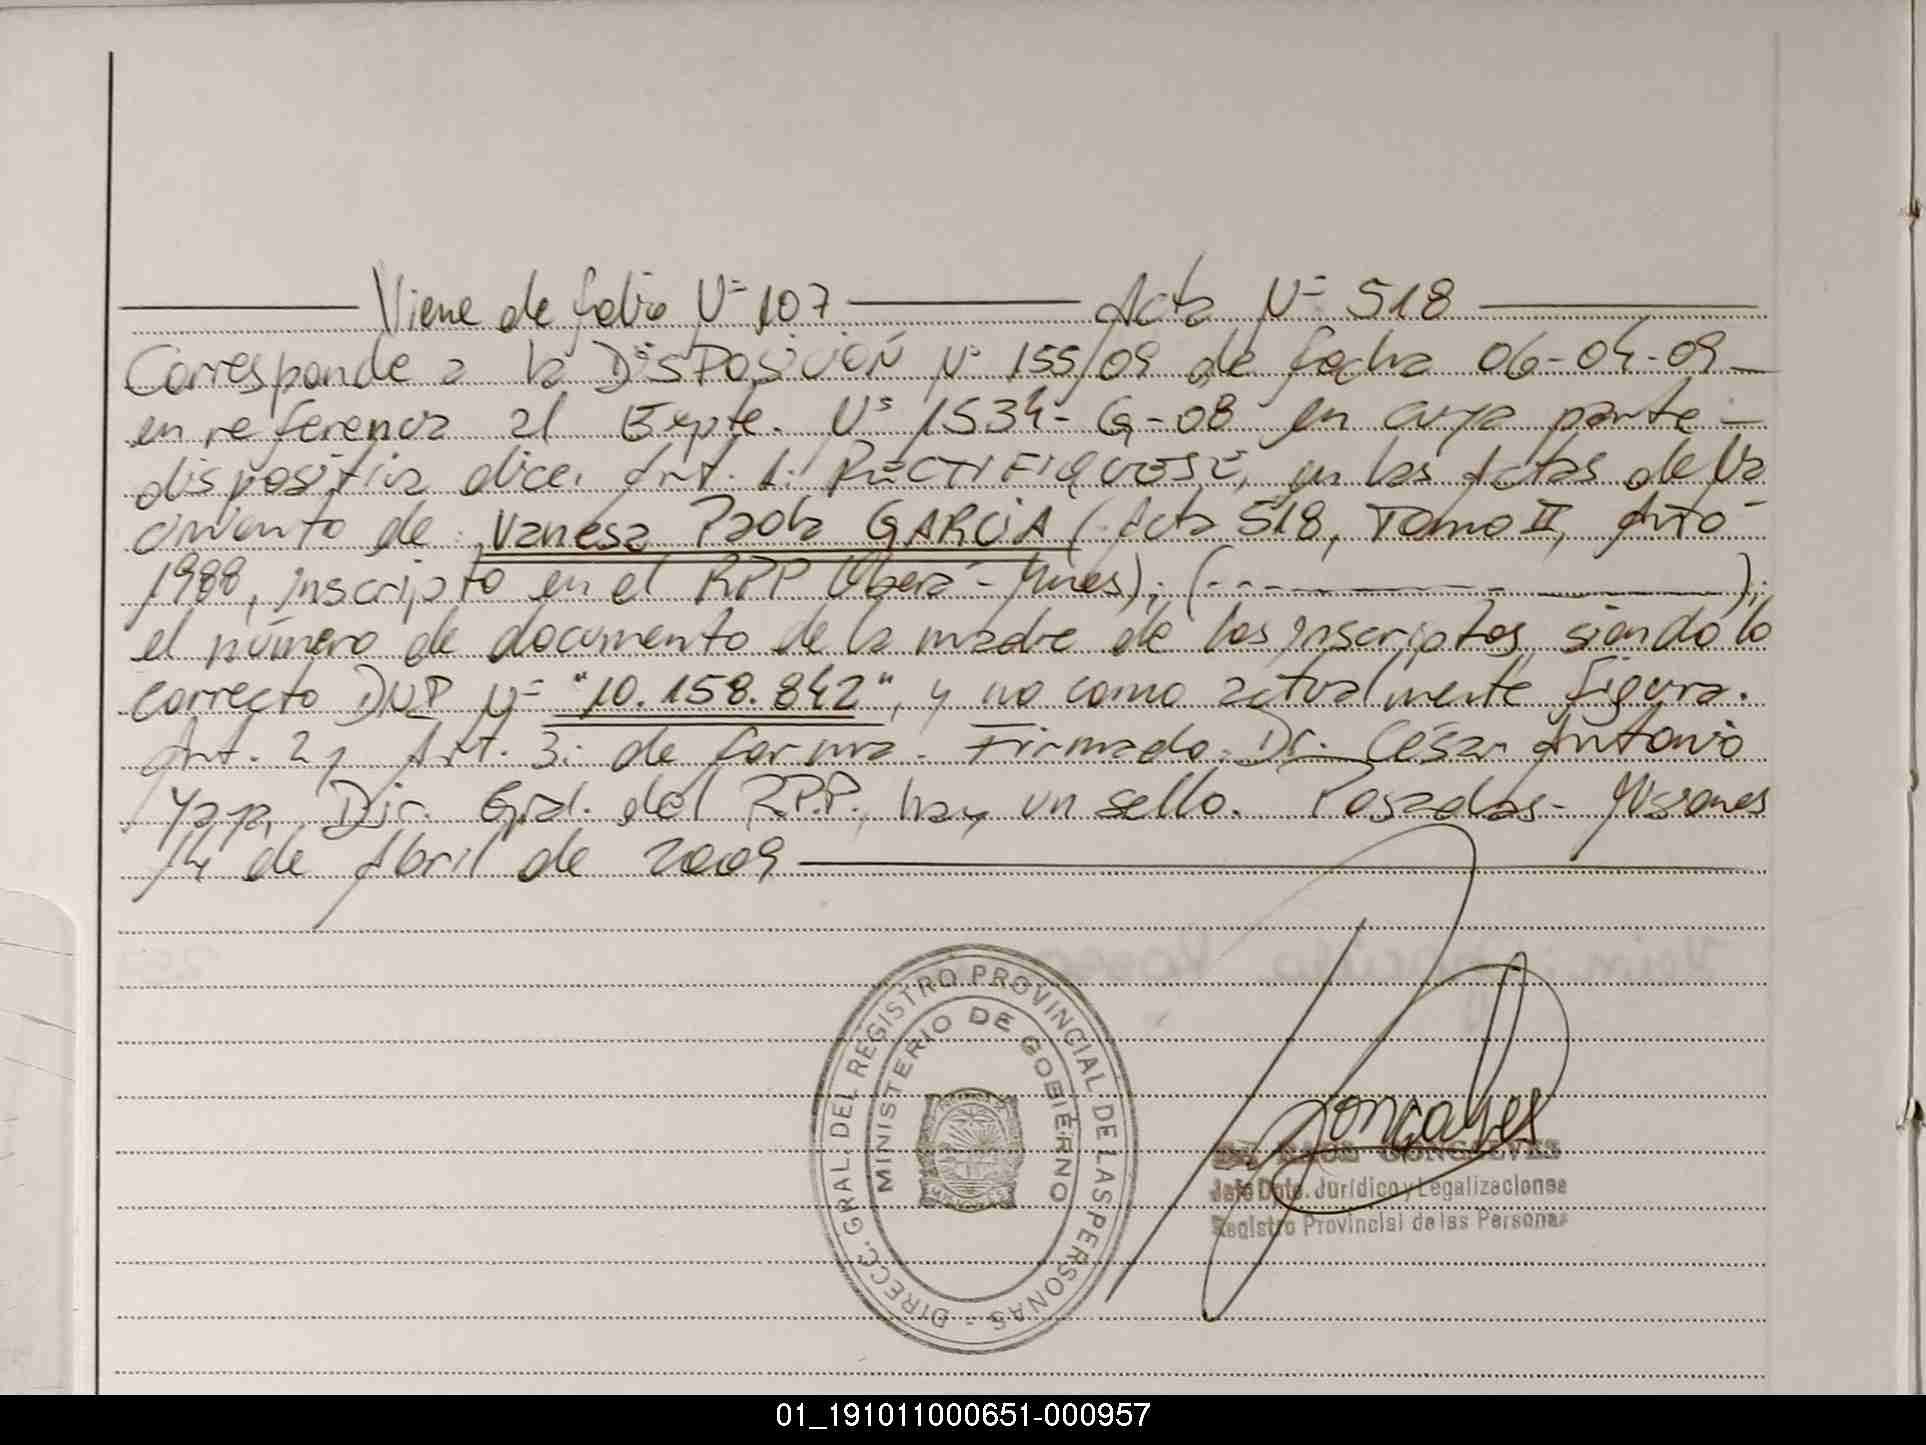 Viene de folio Nº 107 Acta Nº 518
Corresponde a la DISPOSICIÓN Nº 155/09 de fecha 06-04-09
en referencia al Expte. Nº 1534-G-08 en cuya parte
dispositiva dice: Art. 1: RECTIFIQUESE, en las Actas de Na
cimiento de: Vanesa Paola GARCIA (Acta 518, Tomo II, Año
1988, inscripto en el RPP Oberá - Mnes); (- - - );
el número de documento de la madre de los inscriptos, siendo lo
correcto DNI Nº "10.158.842", y no como actualmente figura.
Art. 2 y Art. 3: de forma. Firmado: Dr. César Antonio
Yaya, Dir. Gral. del R.P.P., hay un sello. Posadas - Misiones
14 de Abril de 2009
DIRECC. GRAL. DEL REGISTRO PROVINCIAL DE LAS PERSONAS -
MINISTERIO DE GOBIERNO
MISIONES
Gonçalves
GONCALVES
Jefe Dpto. Jurídico y Legalizaciones
Registro Provincial de las Personas
01_191011000651-000957